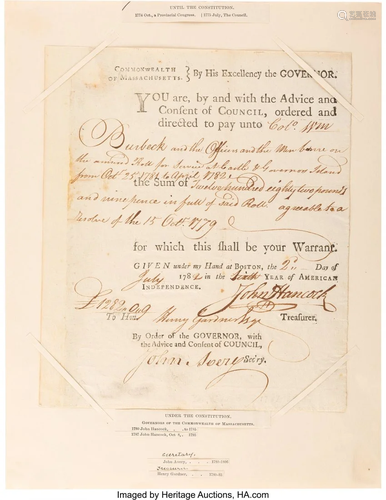 UNTIL THE CONSTITUTION.
1774 Oct., a Provincial Congress. | 1775 July, The Council.
COMMONWEALTH
OF MASSACHUSETTS. } By His Excellency the GOVERNOR.
YOU are, by and with the Advice and
Consent of COUNCIL, ordered and
directed to pay unto Colo. Wm
Burbeck and the Officers and the Men borne on
the annexed Roll for Service at Castle & Governors Island
from Octr. 25 1781 to April 1782
the Sum of Twelve hundred eighty two pounds
and nine pence in full of said Roll agreeable to a
Resolve of the 15 Octr. 1779
for which this shall be your Warrant.
GIVEN under my Hand at BOSTON, the 2d Day of
July 1782 in the Sixth YEAR of AMERICAN
INDEPENDENCE.
John Hancock
£1282.. 0.. 9
To Henry Gardner Esqr. Treasurer.
By Order of the GOVERNOR, with
the Advice and Consent of COUNCIL,
John Avery Secry.
UNDER THE CONSTITUTION.
GOVERNORS OF THE COMMONWEALTH OF MASSACHUSETTS.
1780 John Hancock, to 1785
1787 John Hancock, Oct 8, 1793
Secretary
John Avery,
Treasurer
Henry Gardner,
Imaged by Heritage Auctions, HA.com